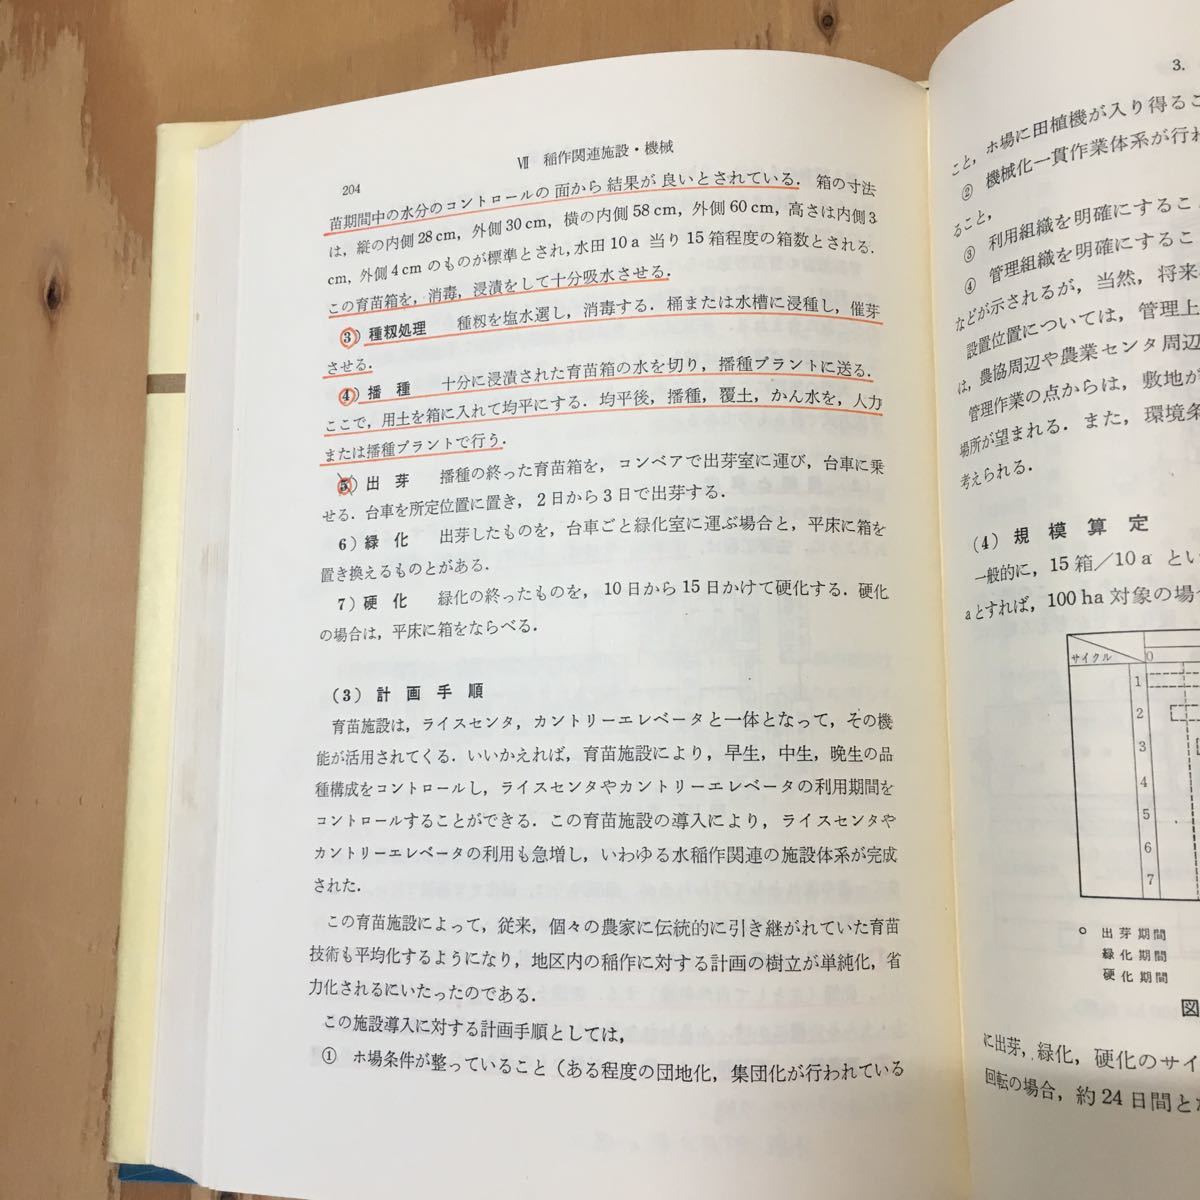 VII 稲作関連施設・機械
204
苗期間中の水分のコントロールの面から結果が良いとされている．箱の寸法
は，縦の内側28cm，外側30cm，横の内側58cm，外側60cm，高さは内側3
cm，外側4cmのものが標準とされ，水田10a当り15箱程度の箱数とされる．
この育苗箱を，消毒，浸漬をして十分吸水させる．
3）種籾処理　種籾を塩水選し，消毒する．桶または水槽に浸種し，催芽
させる．
4）播種　十分に浸漬された育苗箱の水を切り，播種プラントに送る．
ここで，用土を箱に入れて均平にする．均平後，播種，覆土，かん水を，人力
または播種プラントで行う．
5）出芽　播種の終った育苗箱を，コンベアで出芽室に運び，台車に乗
せる．台車を所定位置に置き，2日から3日で出芽する．
6）緑化　出芽したものを，台車ごと緑化室に運ぶ場合と，平床に箱を
置き換えるものとがある．
7）硬化　緑化の終ったものを，10日から15日かけて硬化する．硬化
の場合は，平床に箱をならべる．
（3）計画手順
育苗施設は，ライスセンタ，カントリーエレベータと一体となって，その機
能が活用されてくる．いいかえれば，育苗施設により，早生，中生，晩生の品
種構成をコントロールし，ライスセンタやカントリーエレベータの利用期間を
コントロールすることができる．この育苗施設の導入により，ライスセンタや
カントリーエレベータの利用も急増し，いわゆる水稲作関連の施設体系が完成
された．
この育苗施設によって，従来，個々の農家に伝統的に引き継がれていた育苗
技術も平均化するようになり，地区内の稲作に対する計画の樹立が単純化，省
力化されるにいたったのである．
この施設導入に対する計画手順としては，
① ホ場条件が整っていること（ある程度の団地化，集団化が行われている
3.
こと，ホ場に田植機が入り得るこ
② 機械化一貫作業体系が行わ
ること，
③ 利用組織を明確にすること
④ 管理組織を明確にすること
などが示されるが，当然，将来
設置位置については，管理上
は，農協周辺や農業センタ周辺
管理作業の点からは，敷地が
場所が望まれる．また，環境条
考えられる．
（4）規模算定
一般的に，15箱／10aとい
aとすれば，100ha対象の場合
サイクル
0
1
2
3
4
5
6
7
出芽期間
緑化期間
硬化期間
図
に出芽，緑化，硬化のサイ
回転の場合，約24日間と